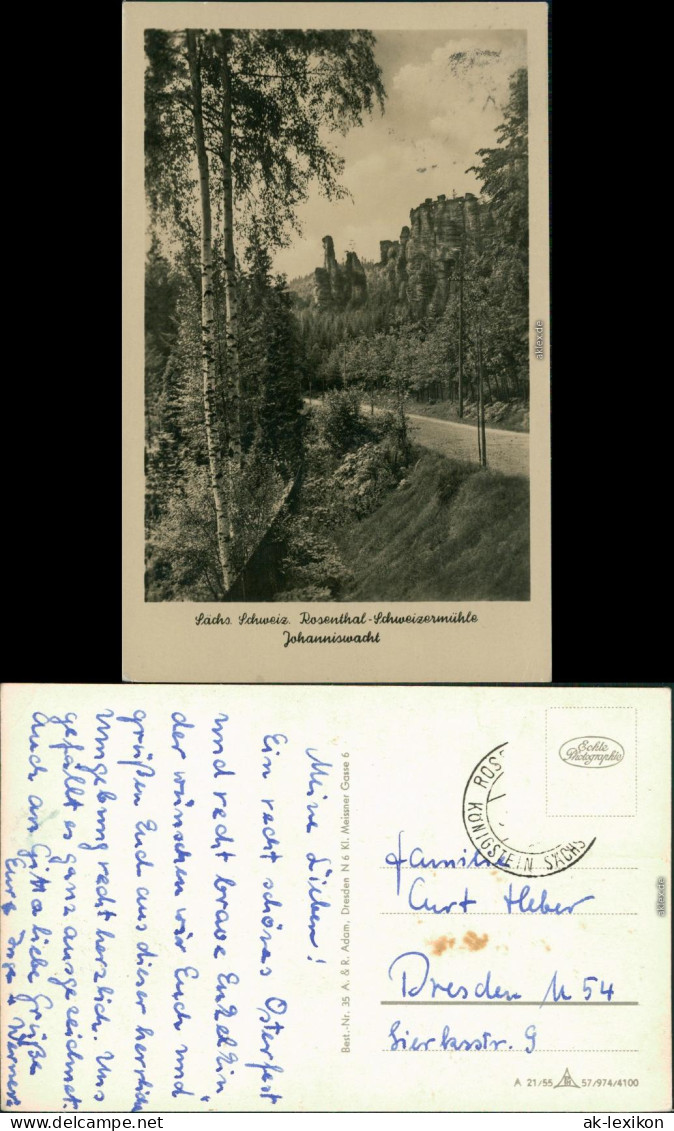 aklex.de
Sächs. Schweiz. Rosenthal-Schweizermühle
Johanniswacht
Meine Lieben!
Ein recht schönes Osterfest
und recht brave Enkelein
der wünschen wir Euch und
grüßen Euch aus dieser herrlichen
Umgebung recht herzlich. Uns
gefällt es ganz ausgezeichnet.
Auch an Gitta liebe Grüße
Eure Inge u. Werner
Best.-Nr. 35 A. & R. Adam, Dresden N 6 Kl. Meissner Gasse 6
Echte
Photographie
ROS
KÖNIGSTEIN SÄCHS
Familie
Curt Heber
Dresden N 54
9
A 21/55 57/974/4100
aklex.de
www.delcampe.net
ak-lexikon